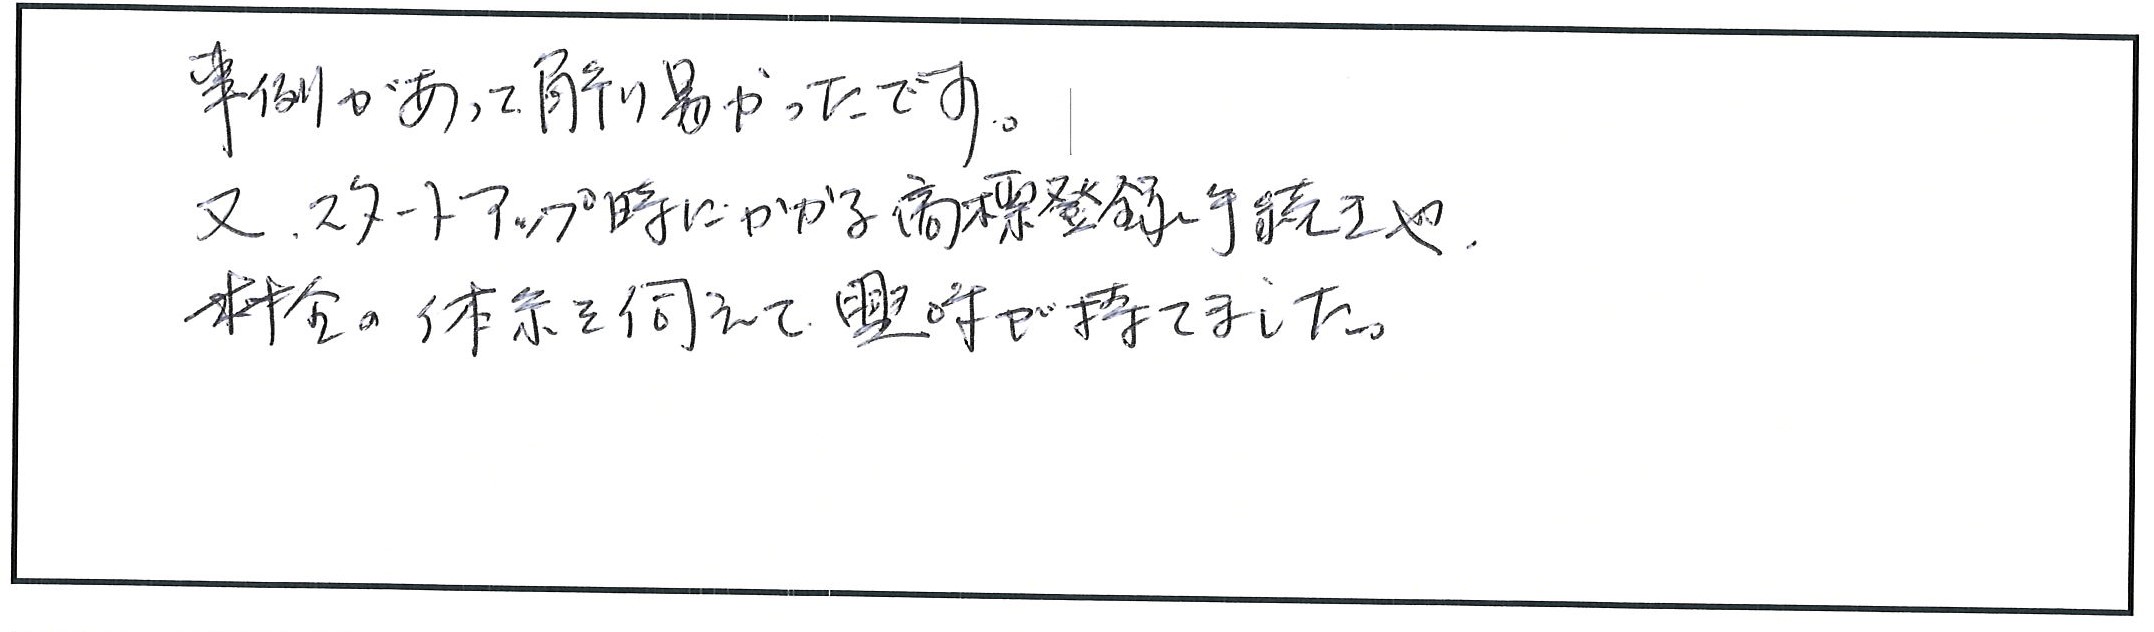 事例があって解り易かったです。
又、スタートアップ時にかかる商標登録手続きや、
料金の体系を伺えて興味が持てました。